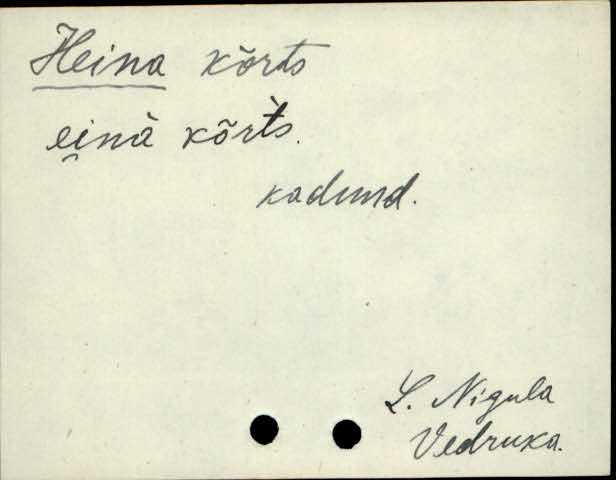 Heina kõrts
ei̯nà kõrt̀s.
kadund.
L. Nigula
Vedruka.